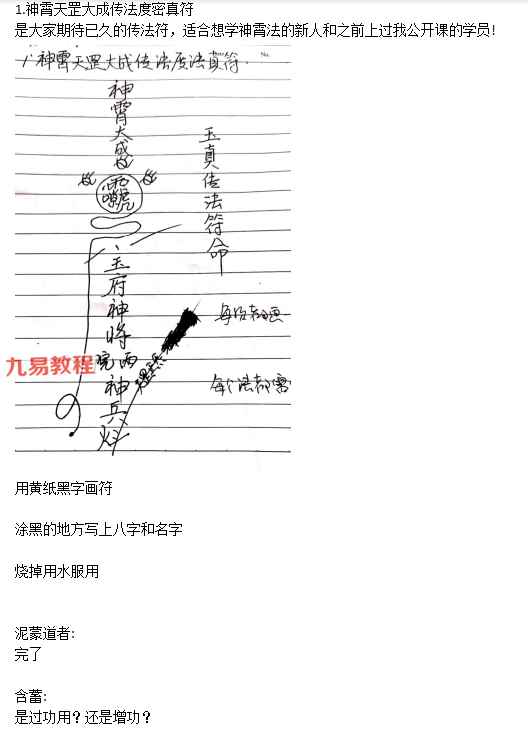 1.神霄天罡大成传法度密真符
是大家期待已久的传法符，适合想学神霄法的新人和之前上过我公开课的学员!
1、神霄天罡大成传法度法真符.
神霄大盛
玉真传法符命
玉府神将
神兵
九易教程
每个法都需
用黄纸黑字画符
涂黑的地方写上八字和名字
烧掉用水服用
泥蒙道者:
完了
含蓄:
是过功用？还是增功？